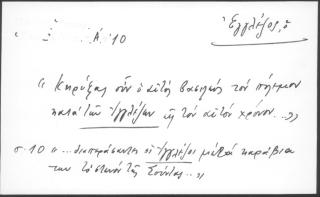 Α. '10
Ἐγγλέζος, ὁ
"Κηρύξας οὖν ὁ αὐτὸς βασιλεὺς τὸν πόλεμον
κατὰ τῶν Ἰγγλέζων εἰς τὸν αὐτὸν χρόνον..."
σ. 10 "...διαπεράσαντες οἱ Ἰγγλέζοι μὲ καράβια
των τὸ στενὸν τῆς Σούντας.."